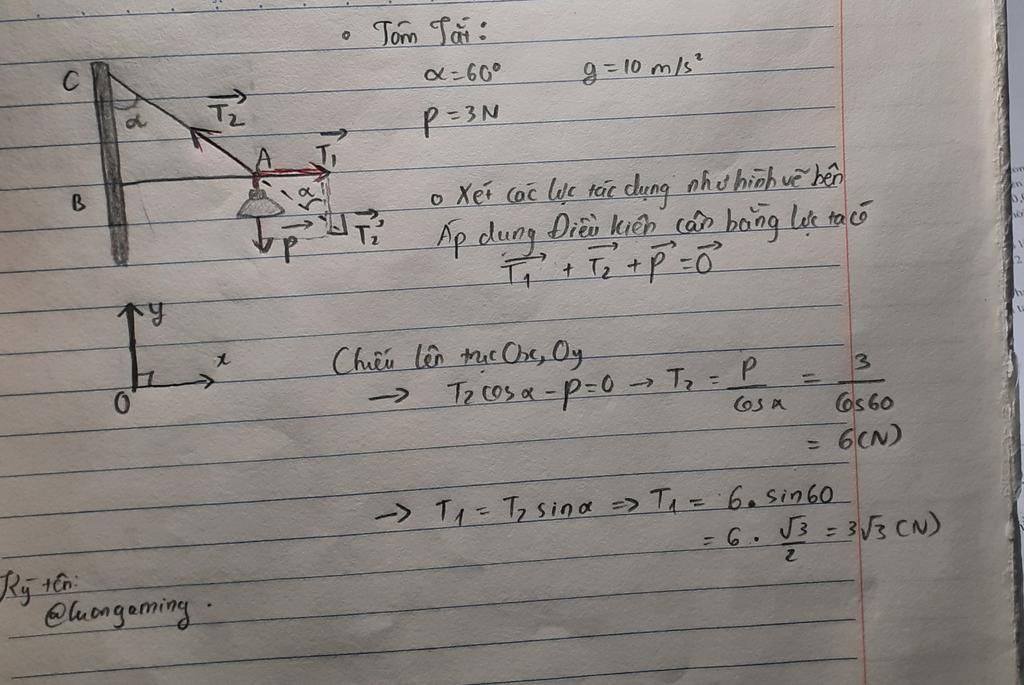 o Tóm Tắt:
α=60° g=10 m/s²
P=3N
C
α
T₂
A
T₁
B
α
P
T₂'
o Xét các lực tác dụng như hình vẽ bên
Áp dụng Điều kiên cân bằng lực ta có
T₁ + T₂ + P = 0
y
x
O
Chiếu lên trục Ox, Oy
→ T₂ cos α - P=0 → T₂ = P/cos α = 3/cos60
= 6(N)
→ T₁ = T₂ sinα => T₁ = 6. sin60
= 6 . √3/2 = 3√3 (N)
Ký tên:
@luongaming.